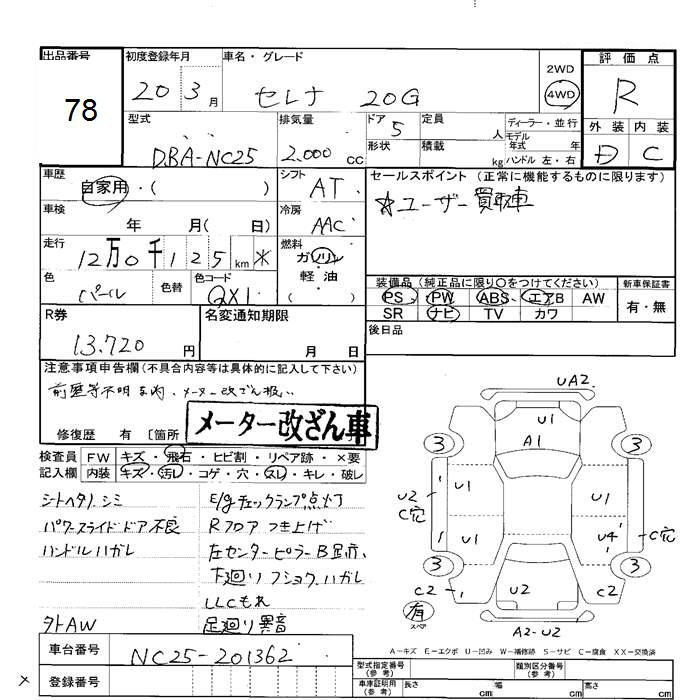 出品番号
78
初度登録年月
20 3月
車名・グレード
セレナ 20G
2WD
4WD
評価点
R
外装 内装
D C
型式
DBA-NC25
排気量
2.000 cc
ドア 5
形状
定員 人
積載 kg
ディーラー・並行
モデル
年式 年
ハンドル 左・右
車歴
自家用・( )
シフト
AT
セールスポイント (正常に機能するものに限ります)
☆ユーザー買取車
車検
年 月( 日)
冷房
AAC
走行
12万0千125km ＊
燃料
ガソリン
軽・油
( )
色
パール
色替
色コード
QX1
装備品 (純正品に限り〇をつけてください)
PS PW ABS エアB AW
SR ナビ TV カワ
新車保証書
有・無
R券
13.720円
名変通知期限
月 日
後日品
注意事項申告欄(不具合内容等は具体的に記入して下さい)
メーター改ざん扱い
メーター改ざん車
修復歴 有 〔箇所
検査員
記入欄
FW キズ・飛石・ヒビ割・リペア跡・×要
内装 キズ・汚レ・コゲ・穴・スレ・キレ・破レ
シートヘタリ、シミ
パワースライドドア不良
ハンドルハガレ
外AW
E/gチェックランプ点灯
Rフロアつき上げ
左センターピラーB
下廻りフショク、ハガレ
LLCもれ
足廻り異音
UA2
U1
A1
3
3
U1
U1
U2
C穴
U1
U4
C穴
3
3
C2
U2
C2
有
スペア
A2-U2
A－キズ E－エクボ U－凹み W－補修跡 S－サビ C－腐食 XX－交換済
車台番号
NC25-201362
登録番号
型式指定番号
(参考)
類別区分番号
(参考)
車庫証明用
(参考)
長さ cm
幅 cm
高さ cm
×